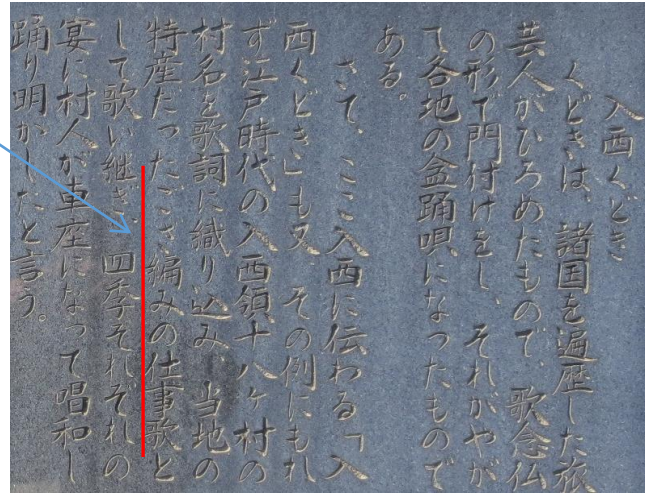 入西くどき
くどきは、諸国を遍歴した旅
芸人がひろめたもので、歌念仏
の形で門付けをし、それがやが
て各地の盆踊唄になったもので
ある。
さて、ここ入西に伝わる「入
西くどき」も又、その例にもれ
ず江戸時代の入西領十八ヶ村の
村名を歌詞に織り込み、当地の
特産だったござ編みの仕事歌と
して歌い継ぎ、四季それぞれの
宴に村人が車座になって唱和し
踊り明かしたと言う。